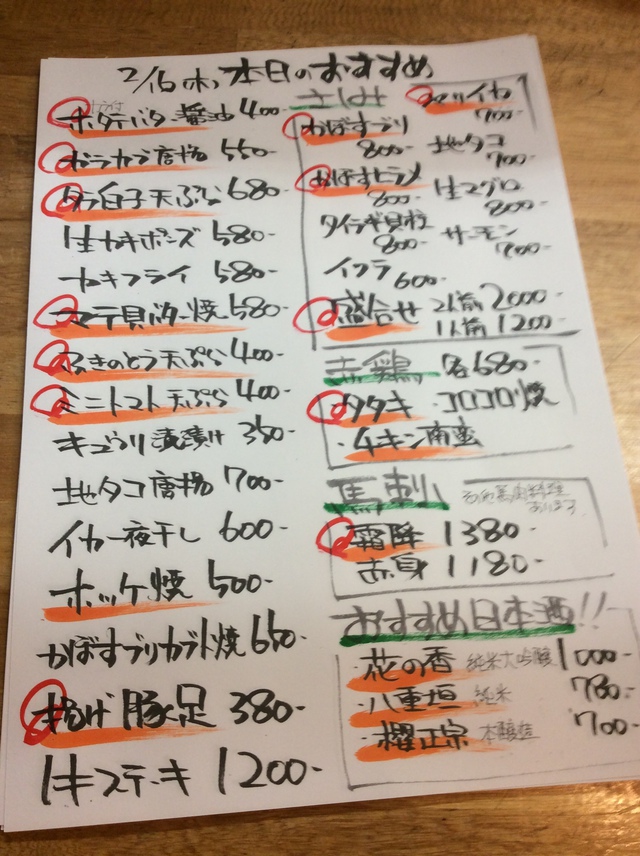 2/16(木) 本日のおすすめ
ホタテバター醤油 400-
ボラカブ唐揚 550-
タラ白子天ぷら 680-
生カキポンズ 580-
カキフライ 580-
マテ貝バター焼 580-
ふきのとう天ぷら 400-
ミニトマト天ぷら 400-
キュウリ漬 350-
地タコ唐揚 700-
イカ一夜干し 600-
ホッケ焼 500-
かぼすブリカブト焼 650-
揚げ豚足 380-
ステーキ 1200-
さしみ
ヤリイカ
700-
かぼすブリ
800-
地タコ
700-
かぼすヒラメ
800-
生マグロ
800-
タイラギ貝柱
800-
サーモン
700-
イクラ
600-
盛合せ 2人前 2000-
1人前 1200-
赤鶏 各680-
タタキ ・コロコロ焼
・チキン南蛮
馬刺し
霜降 1380-
赤身 1180-
おすすめ日本酒!!
・花の香 純米大吟醸 1000-
・八重垣 純米 780-
・櫂正宗 本醸造 700-